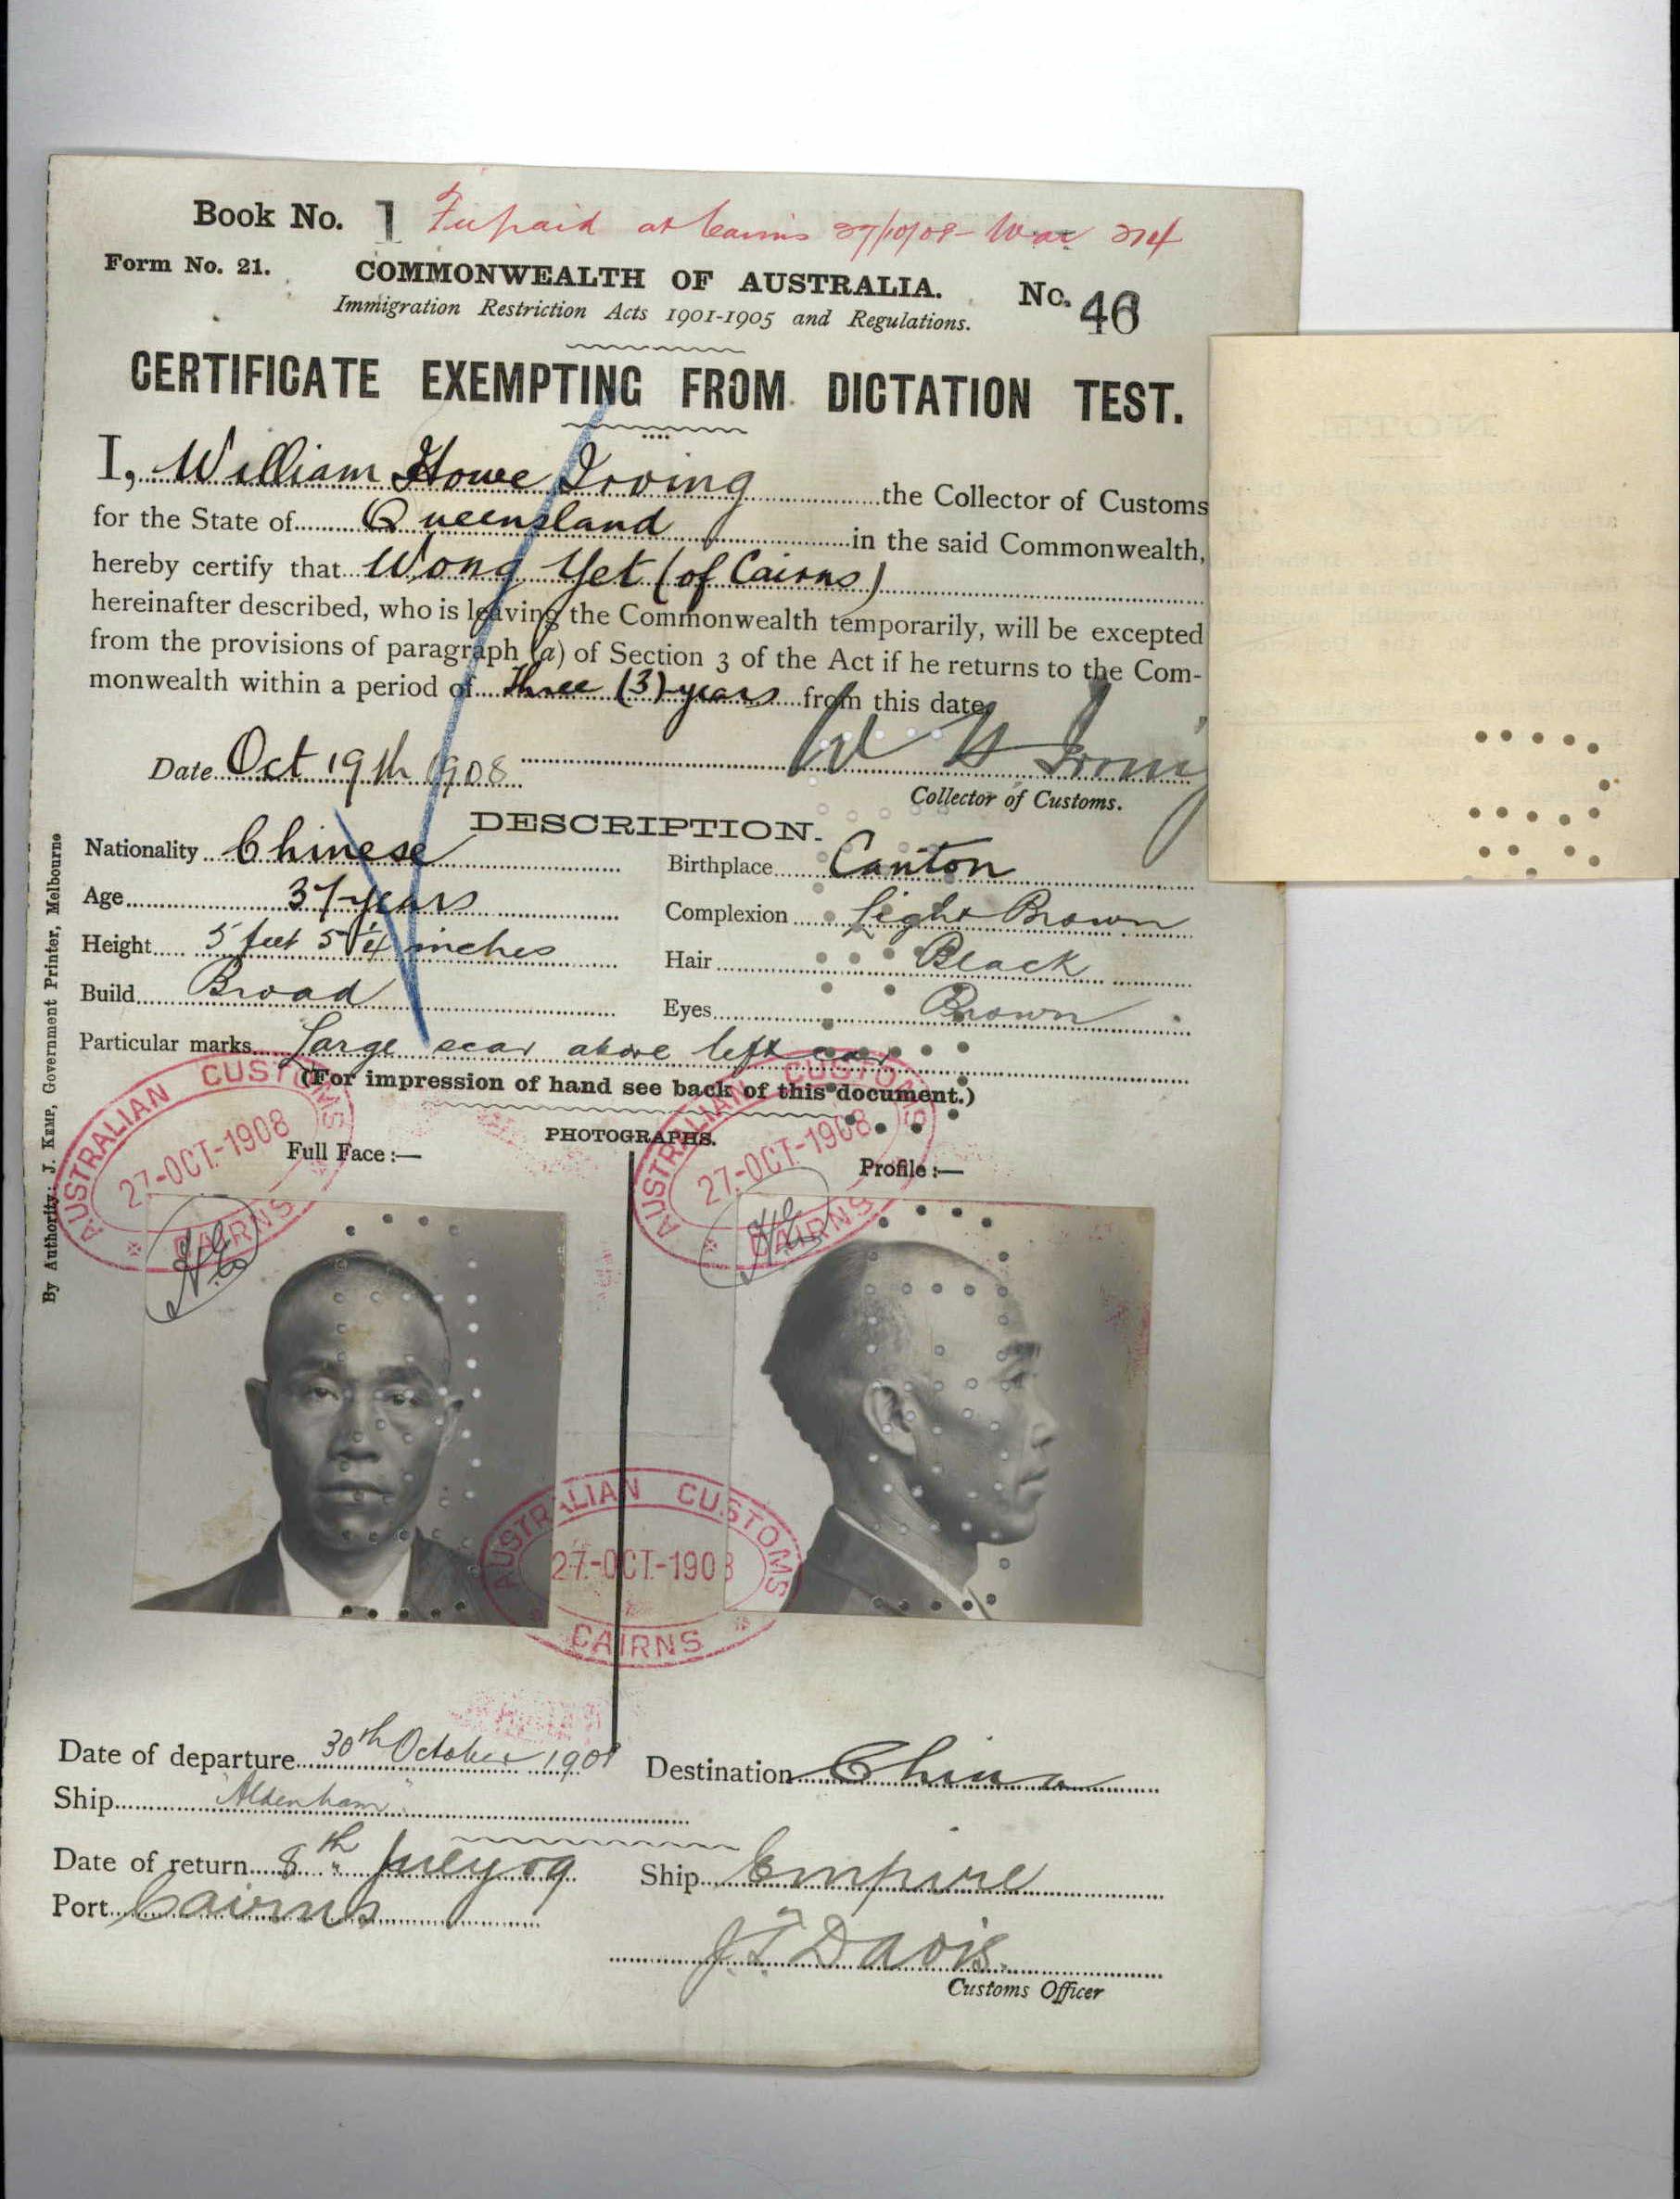 Book No. 1 Fee paid at Cairns 27/10/08
Form No. 21.
COMMONWEALTH OF AUSTRALIA.
No. 46
Immigration Restriction Acts 1901-1905 and Regulations.
CERTIFICATE EXEMPTING FROM DICTATION TEST.
I, William Howe Irving the Collector of Customs
for the State of Queensland in the said Commonwealth,
hereby certify that Wong Yet (of Cairns)
hereinafter described, who is leaving the Commonwealth temporarily, will be excepted
from the provisions of paragraph (a) of Section 3 of the Act if he returns to the Com-
monwealth within a period of three (3) years from this date
W H Irving
Date Oct 19th 1908
Collector of Customs.
DESCRIPTION.
Nationality Chinese
Birthplace Canton
Age 37 years
Complexion Light Brown
Height 5 feet 5 1/4 inches
Hair Black
Build Broad
Eyes Brown
Particular marks Large scar above left ear
(For impression of hand see back of this document.)
PHOTOGRAPHS.
Full Face :—
Profile :—
AUSTRALIAN CUSTOMS
27-OCT.-1908
CAIRNS
AUSTRALIAN CUSTOMS
27-OCT.-1908
CAIRNS
AUSTRALIAN CUSTOMS
27-OCT.-1908
CAIRNS
Date of departure 30th October 1908
Destination China
Ship "Aldenham"
Date of return 8th July 09
Ship Empire
Port Cairns
J. T. Davis.
Customs Officer
By Authority: J. KEMP, Government Printer, Melbourne